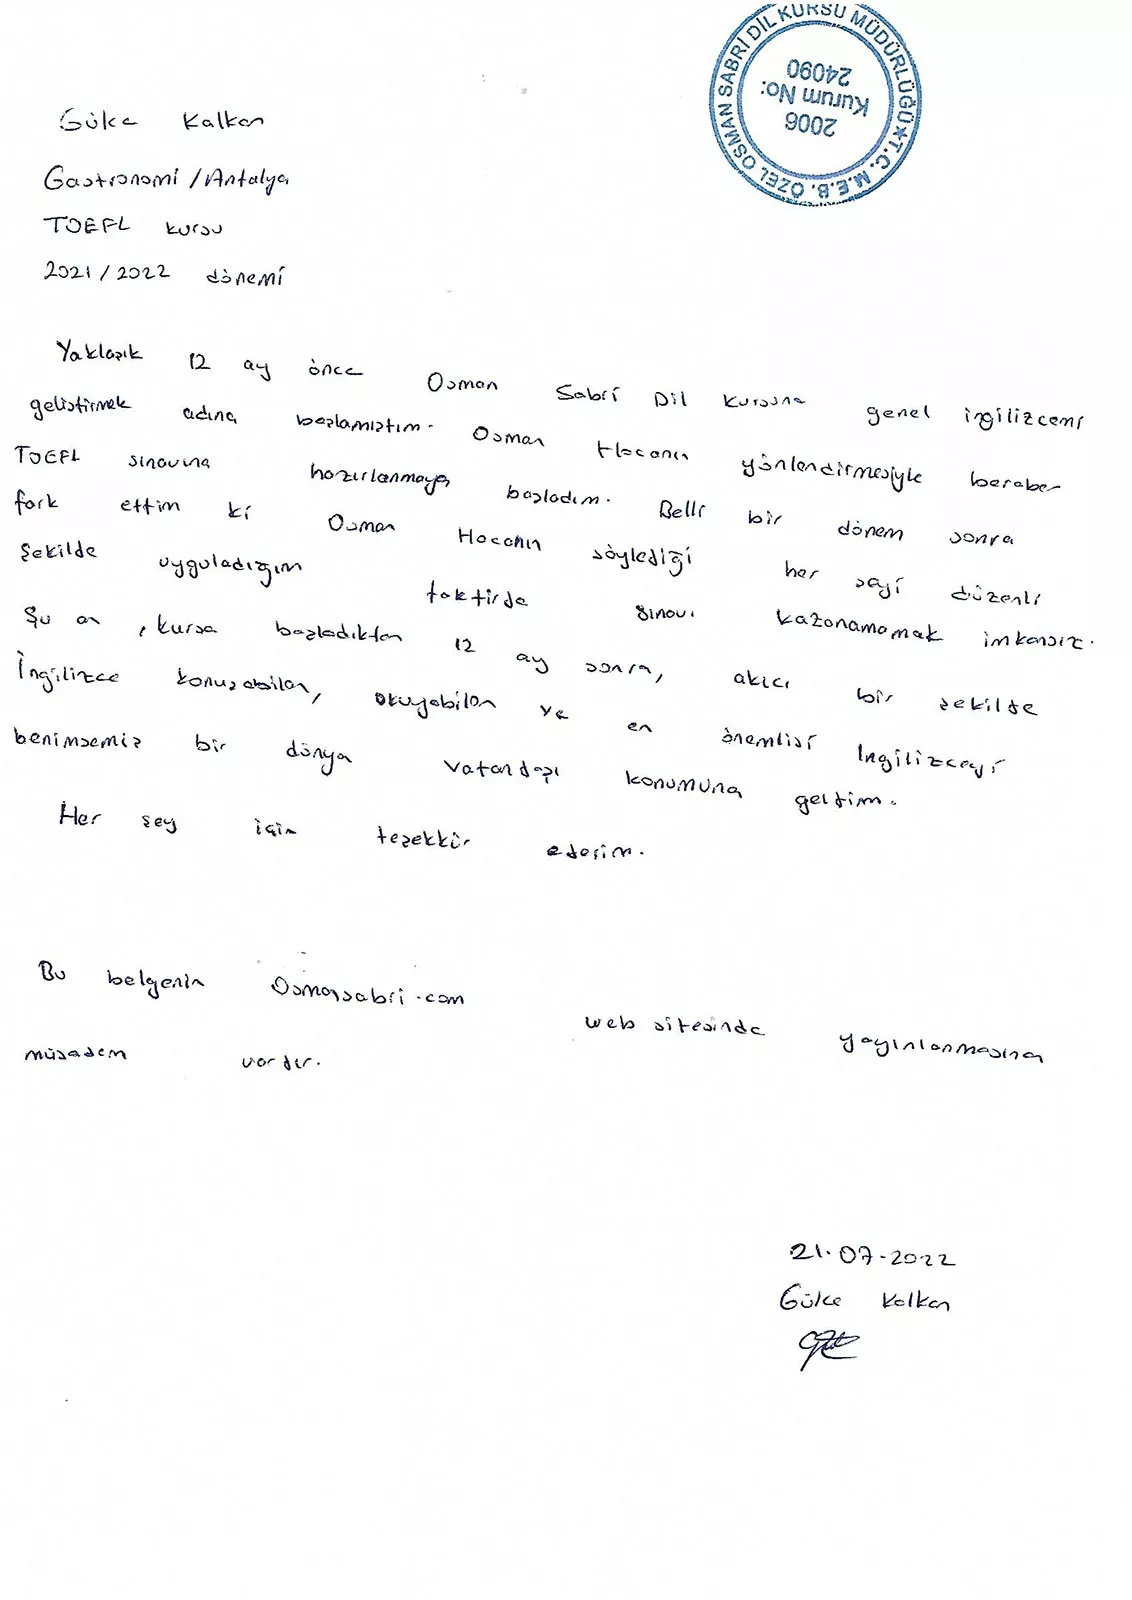 T.C. M.E.B. ÖZEL OSMAN SABRİ DİL KURSU MÜDÜRLÜĞÜ★
2006
Kurum No:
24090
Gülce Kalkan
Gastronomi / Antalya
TOEFL kursu
2021 / 2022 dönemi
Yaklaşık 12 ay önce Osman Sabri Dil kursuna genel ingilizcemi
geliştirmek adına başlamıştım. Osman Hocanın yönlendirmesiyle beraber
TOEFL sınavına hazırlanmaya başladım. Belli bir dönem sonra
fark ettim ki Osman Hocanın söylediği her şeyi düzenli
şekilde uyguladığım taktirde sınavı kazanamamak imkansız.
Şu an, kursa başladıktan 12 ay sonra, akıcı bir şekilde
İngilizce konuşabilen, okuyabilen ve en önemlisi İngilizceyi
benimsemiş bir dünya vatandaşı konumuna geldim.
Her şey için teşekkür ederim.
Bu belgenin Osmansabri.com web sitesinde yayınlanmasına
müsadem vardır.
21.07.2022
Gülce Kalkan